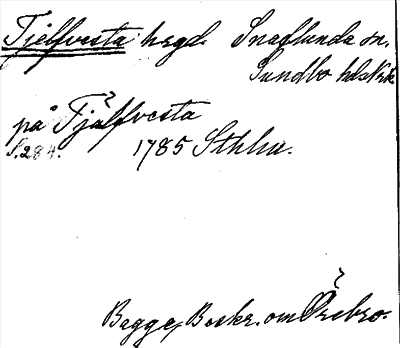 Tjelfvesta hrgd. Snaflunda sn.
Sundbo hdskr.
på Tjälfvesta
S. 284. 1785 Sthlm.
Bagge, Beskr. om Örebro.